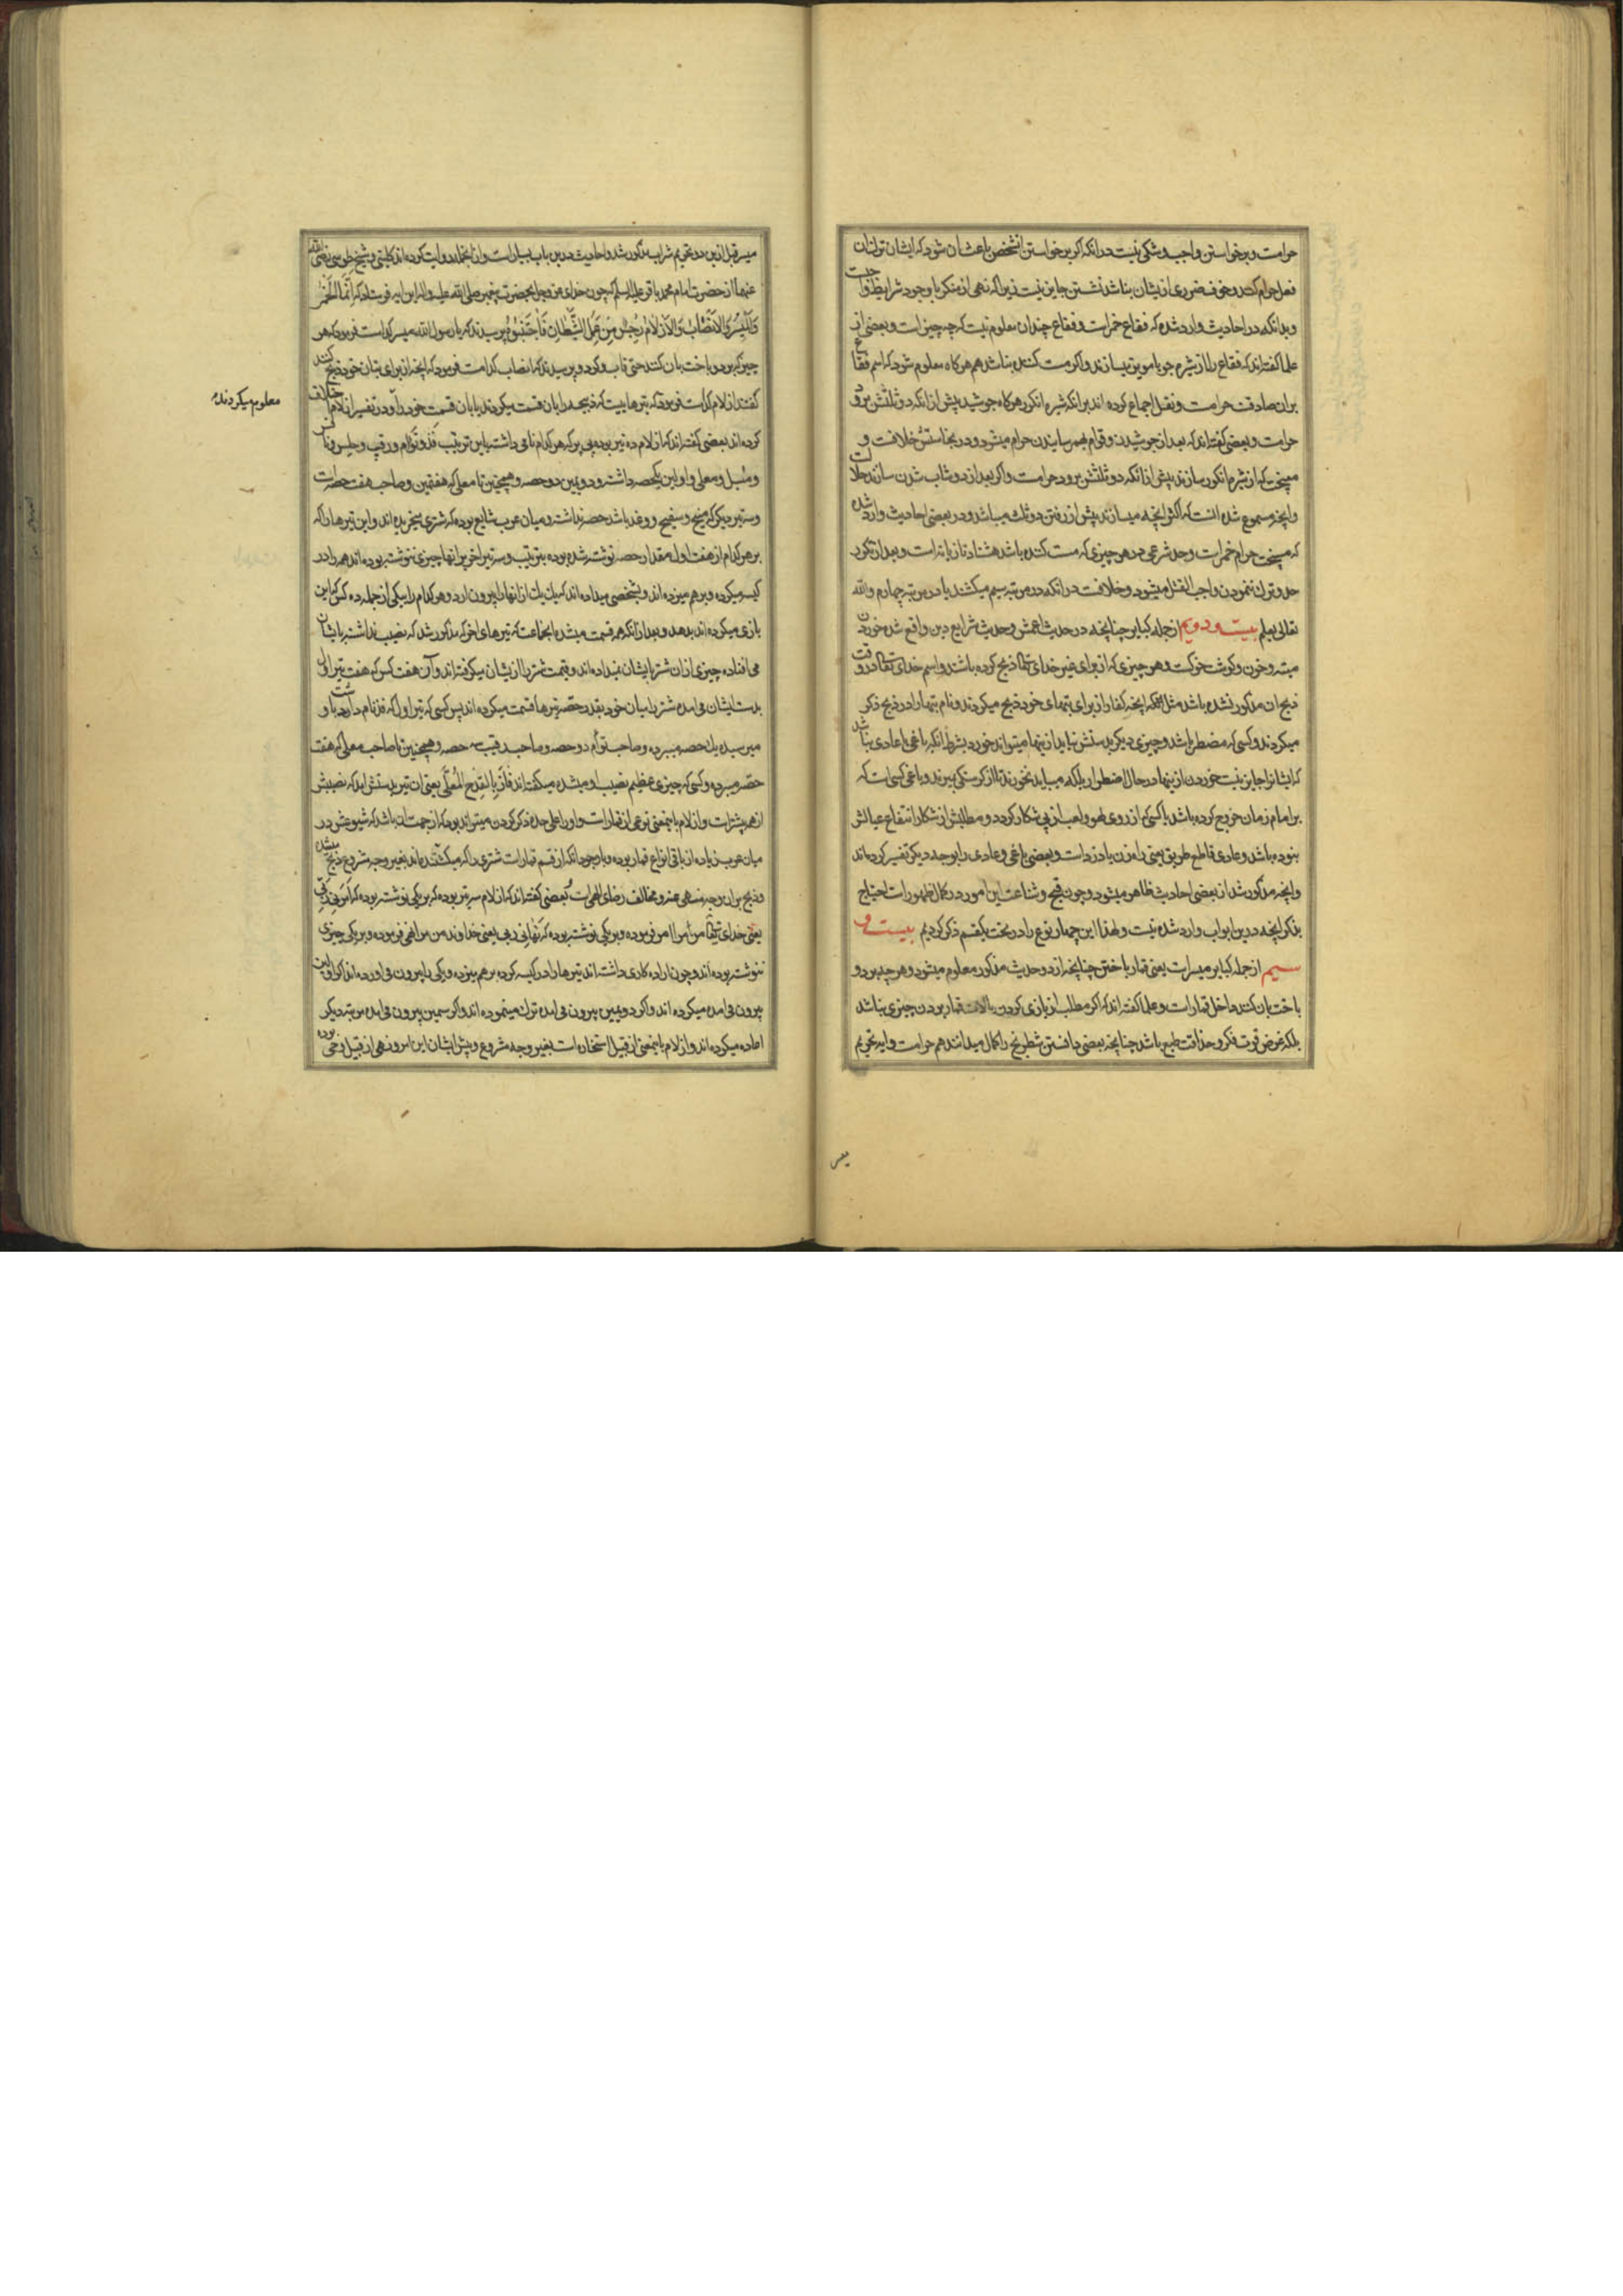 حرامست و برخواستن واجب و شکی نیست در انکه اکر برخواستن انشخص باعث ان شود که ایشان ترک ان
فعل حرام کنند و خوف ضرری از یشان نباشد نشستن جایز نیست زیرا که نهی از منکر با وجود شرایط واجبست
و بدانکه در احادیث وارد شده که فقاع خمر است و فقاع چندان معلوم نیست که چه چیز است و بعضی از
علما کفته اند که فقاع را از شیره جو یا مویز میسازند و اکر مست کننده نباشد هم هرکاه معلوم شود که اسم فقاع
بران صادقست حرامست و نقل اجماع کرده اند بر انکه شیره انکور هرکاه جوشید پیش از انکه دو ثلثش برود
حرامست و بعضی کفته اند که بعد از جوشیدن و قوام بهمرسانیدن حرام میشود و در نجاستش خلافست و
میپخت که از شیره انکور سازند پیش از انکه دو ثلثش برود حرامست و اکر بعد از دوشاب شدن سازند حلالست
و انچه مسموع شده انست که اکثر انچه میسازند پیش از رفتن دو ثلث میباشد و در بعضی احادیث وارد شده
که میپخت حرام خمر است و حد شرعی در هر چیزی که مست کننده باشد هشتاد تازیانه است و بعد از تکرر
حد و ترک ننمودن واجب القتل میشود و خلافست در انکه در مرتبه سیم میکشند یا در مرتبه چهارم والله
تعالی یعلم بیست و دویم از جمله کبایر چنانچه در حدیث اعمش و حدیث شرایع دین واقع شده خوردن
میته و خون و کوشت خوکست و هر چیزی که از برای غیر خدای تعالی ذبح کرده باشند و اسم خدای تعالی در وقت
ذبح ان مذکور نشده باشد مثل انکه انچه کفار از برای بتهای خود ذبح میکردند و نام بتها را در ذبح ذکر
میکردند و کسی که مضطر باشد و چیزی دیکر بدستش نیاید از ینها میتواند خورد بشرط انکه باغی یا عادی نباشد
که ایشانرا جایز نیست خوردن از ینها در حال اضطرار بلکه میباید نخورند تا از کرسنکی بمیرند و باغی کسی است که
بر امام زمان خروج کرده باشد یا کسی که از روی لهو و لعب از پی شکار کردد و مطلبش از شکار انتفاع عیالش
نبوده باشد و عادی قاطع طریق یعنی راه زن یا دزد است و بعضی باغی و عادی را بوجه دیکر تفسیر کرده اند
و انچه مذکور شد از بعضی احادیث ظاهر میشود و چون قبح و شناعت این امور در کمال ظهور است احتیاج
بذکر انچه در ین ابواب وارد شده نیست و لهذا این چهار نوع را در تحت یکقسم ذکر کردیم بیست و
سیم از جمله کبایر میسر است یعنی قمار باختن چنانچه از دو حدیث مذکور معلوم میشود و هر چه برد و
باخت بان کنند داخل قمار است و علما کفته اند که اکر مطلب از بازی کردن بالات قمار بردن چیزی نباشد
بلکه غرض قوت فکر و حذاقت طبع باشد چنانچه بعضی دانستن شطرنج را کمال میدانند هم حرامست و ایه تحریم
میسر قبل از ین در تحریم شراب مذکور شد و احادیث در ین باب بسیار است و از انجمله روایت کرده اند کلینی و شیخ طوسی رضی الله
عنهما از حضرت امام محمد باقر علیه السلم که چون خدای عز و جل بحضرت پیغمبر صلی الله علیه واله این ایه فرستاد که اِنَّمَا الْخَمْرُ
وَالْمَیْسِرُ وَالاَنْصَابُ وَالاَزْلاَمُ رِجْسٌ مِنْ عَمَلِ الشَّیْطَانِ فَاجْتَنِبُوهُ پرسیدند که یا رسول الله میسر کدامست فرمود که هر
چیز که برد و باخت بان کنند حتی قاب و کردو پرسیدند که انصاب کدامست فرمود که انچه از برای بتان خود ذبح کنند
کفتند ازلام کدامست فرمود که تیرهاییست که ذبیحه را بان قسمت میکردند یا بان قسمت خود را و در تفسیر ازلام خلاف
معلوم میکردند
کرده اند بعضی کفته اند که ازلام ده تیر بوده بی پر که هر کدام نامی داشته باین ترتیب فذ و توأم و رقیب و حلس و نافس
و مسبل و معلی و اولین یکحصه داشته و دویمین دو حصه و همچنین تا معلی که هفتمین و صاحب هفت حصه است
و سه تیر دیکر که منیح و سفیح و وغد باشد حصه نداشته و میان عرب شایع بوده که شتری میخریده اند و این تیرها را که
بر هر کدام از هفت اول مقدار حصه نوشته شده بوده بترتیب و سه تیر اخر بر انها چیزی ننوشته بوده اند همه را در
کیسه میکرده و برهم میزده اند و بشخصی میداده اند که یک یک از انها را بیرون ارد و هر کدام را بیکی از جمله ده کس که این
بازی میکرده اند بدهد و بعد از انکه همه قسمت میشده انجماعت که تیرهای اخر که مذکور شد که نصیب نداشته بایشان
می افتاده چیزی از ان شتر بایشان نمیداده اند و قیمت شتر را از یشان میکرفته اند و آن هفت کس که هفت تیر اول
بدست ایشان می امده شتر را میان خود بقدر حصه تیرها قسمت میکرده اند پس کسی که تیر اول که فذ نام داشت باو
میرسیده یک حصه میبرده و صاحب توأم دو حصه و صاحب رقیب سه حصه و همچنین تا صاحب معلی که هفت
حصه میبرده و کسی که چیزی عظیم نصیب او میشده میکفته اند فَازَ بِالْقِدْحِ الْمُعَلَّی یعنی ان تیر بدستش امد که نصیبش
از همه بیشتر است و ازلام باینمعنی نوعی از قمار است و او را علی حده ذکر کردن میتواند بود که از جهت ان باشد که شیوعش در
میان عرب زیاده از باقی انواع قمار بوده و با وجود انکه از قسم قمار است شتری را که میکشته اند بغیر وجه مشروع ذبح میشده
و ذبح بر ان وجه منهی عنه و مخالف رضای الهی است و بعضی کفته اند که ازلام سه تیر بوده که بر یکی نوشته بوده که اَمَرَنِی رَبِّی
یعنی خدای تعالی مرا امر فرموده و بر یکی نوشته بوده که نَهَانِی رَبِّی یعنی خداوند من مرا نهی فرموده و بر یکی چیزی
ننوشته بوده اند و چون اراده کاری داشته اند تیرها را در کیسه کرده برهم میزده و یکی را بیرون می اورده اند اکر اولین
بیرون می امده میکرده اند و اکر دویمین بیرون می امده ترک مینموده اند و اکر سیمین بیرون می امده مرتبه دیکر
اعاده میکرده اند و ازلام باینمعنی از قبیل استخاره است بغیر وجه مشروع و پیش ایشان این امر و نهی از قبیل وحی بوده